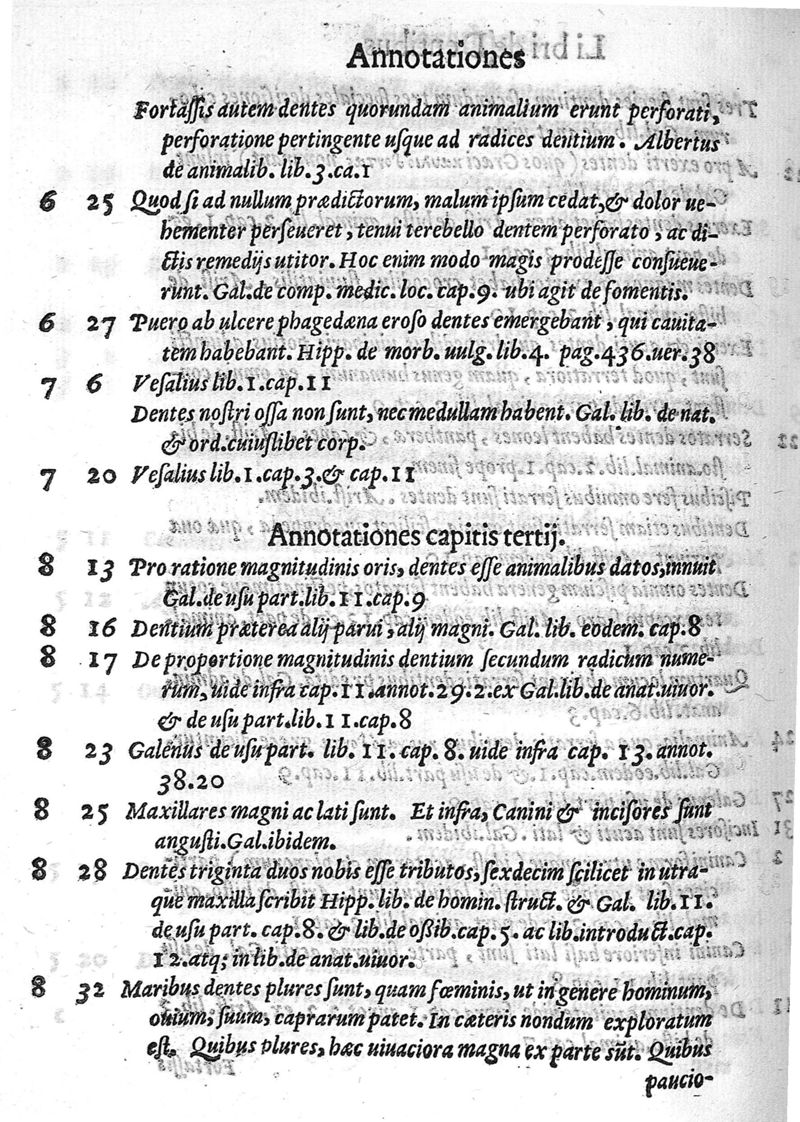 Annotationes
Fortaſſis autem dentes quorundam animalium erunt perforati,
perforatione pertingente uſque ad radices dentium. Albertus
de animalib. lib. 3. ca. 1
6 25 Quod ſi ad nullum prædictorum, malum ipſum cedat, & dolor ue-
hementer perſeueret, tenui terebello dentem perforato, ac di-
ctis remedijs utitor. Hoc enim modo magis prodeſſe conſueue-
runt. Gal. de comp. medic. loc. cap. 9. ubi agit de fomentis.
6 27 Puero ab ulcere phagedæna eroſo dentes emergebant, qui cauita-
tem habebant. Hipp. de morb. uulg. lib. 4. pag. 436. uer. 38
7 6 Veſalius lib. 1. cap. 11
Dentes noſtri oſſa non ſunt, nec medullam habent. Gal. lib. de nat.
& ord. cuiuſlibet corp.
7 20 Veſalius lib. 1. cap. 3. & cap. 11
Annotationes capitis tertij.
8 13 Pro ratione magnitudinis oris, dentes eſſe animalibus datos, innuit
Gal. de uſu part. lib. 11. cap. 9
8 16 Dentium præterea alij parui, alij magni. Gal. lib. eodem. cap. 8
8 17 De proportione magnitudinis dentium ſecundum radicum nume-
rum, uide infra cap. 11. annot. 29. 2. ex Gal. lib. de anat. uiuor.
& de uſu part. lib. 11. cap. 8
8 23 Galenus de uſu part. lib. 11. cap. 8. uide infra cap. 13. annot.
38. 20
8 25 Maxillares magni ac lati ſunt. Et infra, Canini & inciſores ſunt
anguſti. Gal. ibidem.
8 28 Dentes triginta duos nobis eſſe tributos, ſexdecim ſcilicet in utra-
que maxilla ſcribit Hipp. lib. de homin. ſtruct. & Gal. lib. 11.
de uſu part. cap. 8. & lib. de oßib. cap. 5. ac lib. introduct. cap.
12. atq; in lib. de anat. uiuor.
8 32 Maribus dentes plures ſunt, quam fœminis, ut in genere hominum,
ouium, ſuum, caprarum patet. In cæteris nondum exploratum
eſt. Quibus plures, hæc uiuaciora magna ex parte sũt. Quibus
paucio-